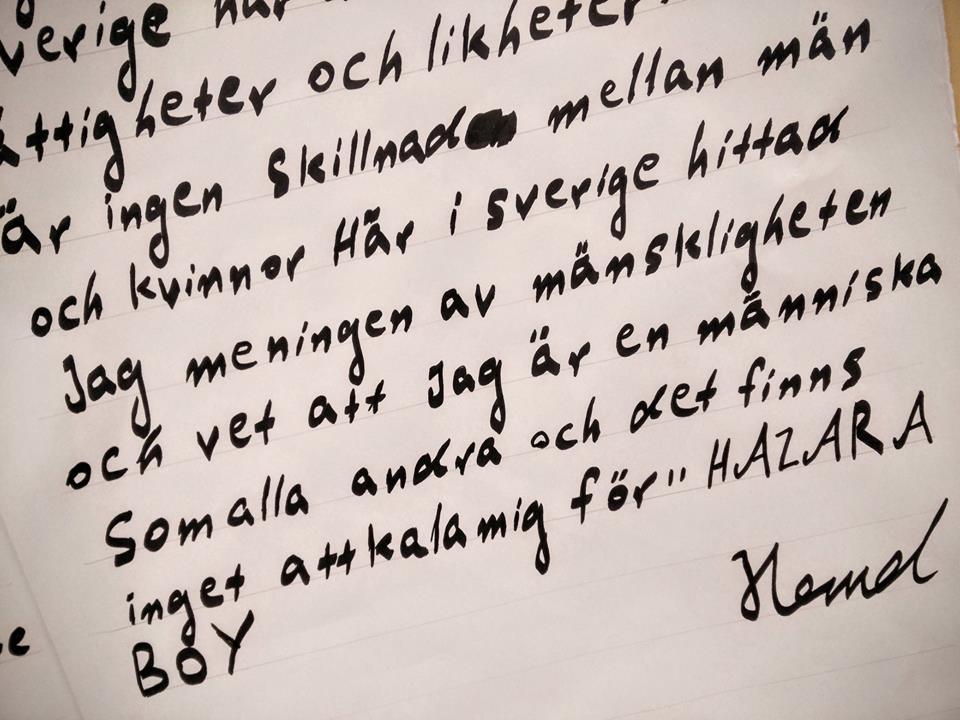 verige har
ättigheter och likheter.
är ingen skillnad mellan män
och kvinnor Här i sverige hittad
Jag meningen av mänskligheten
och vet att Jag är en människa
Som alla andra och det finns
inget att kala mig för" HAZARA
BOY